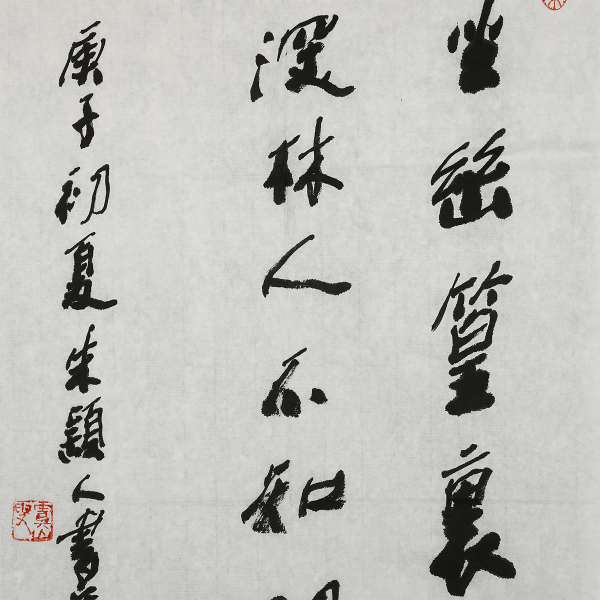 坐幽篁裏
深林人不知
庚子初夏朱穎人書